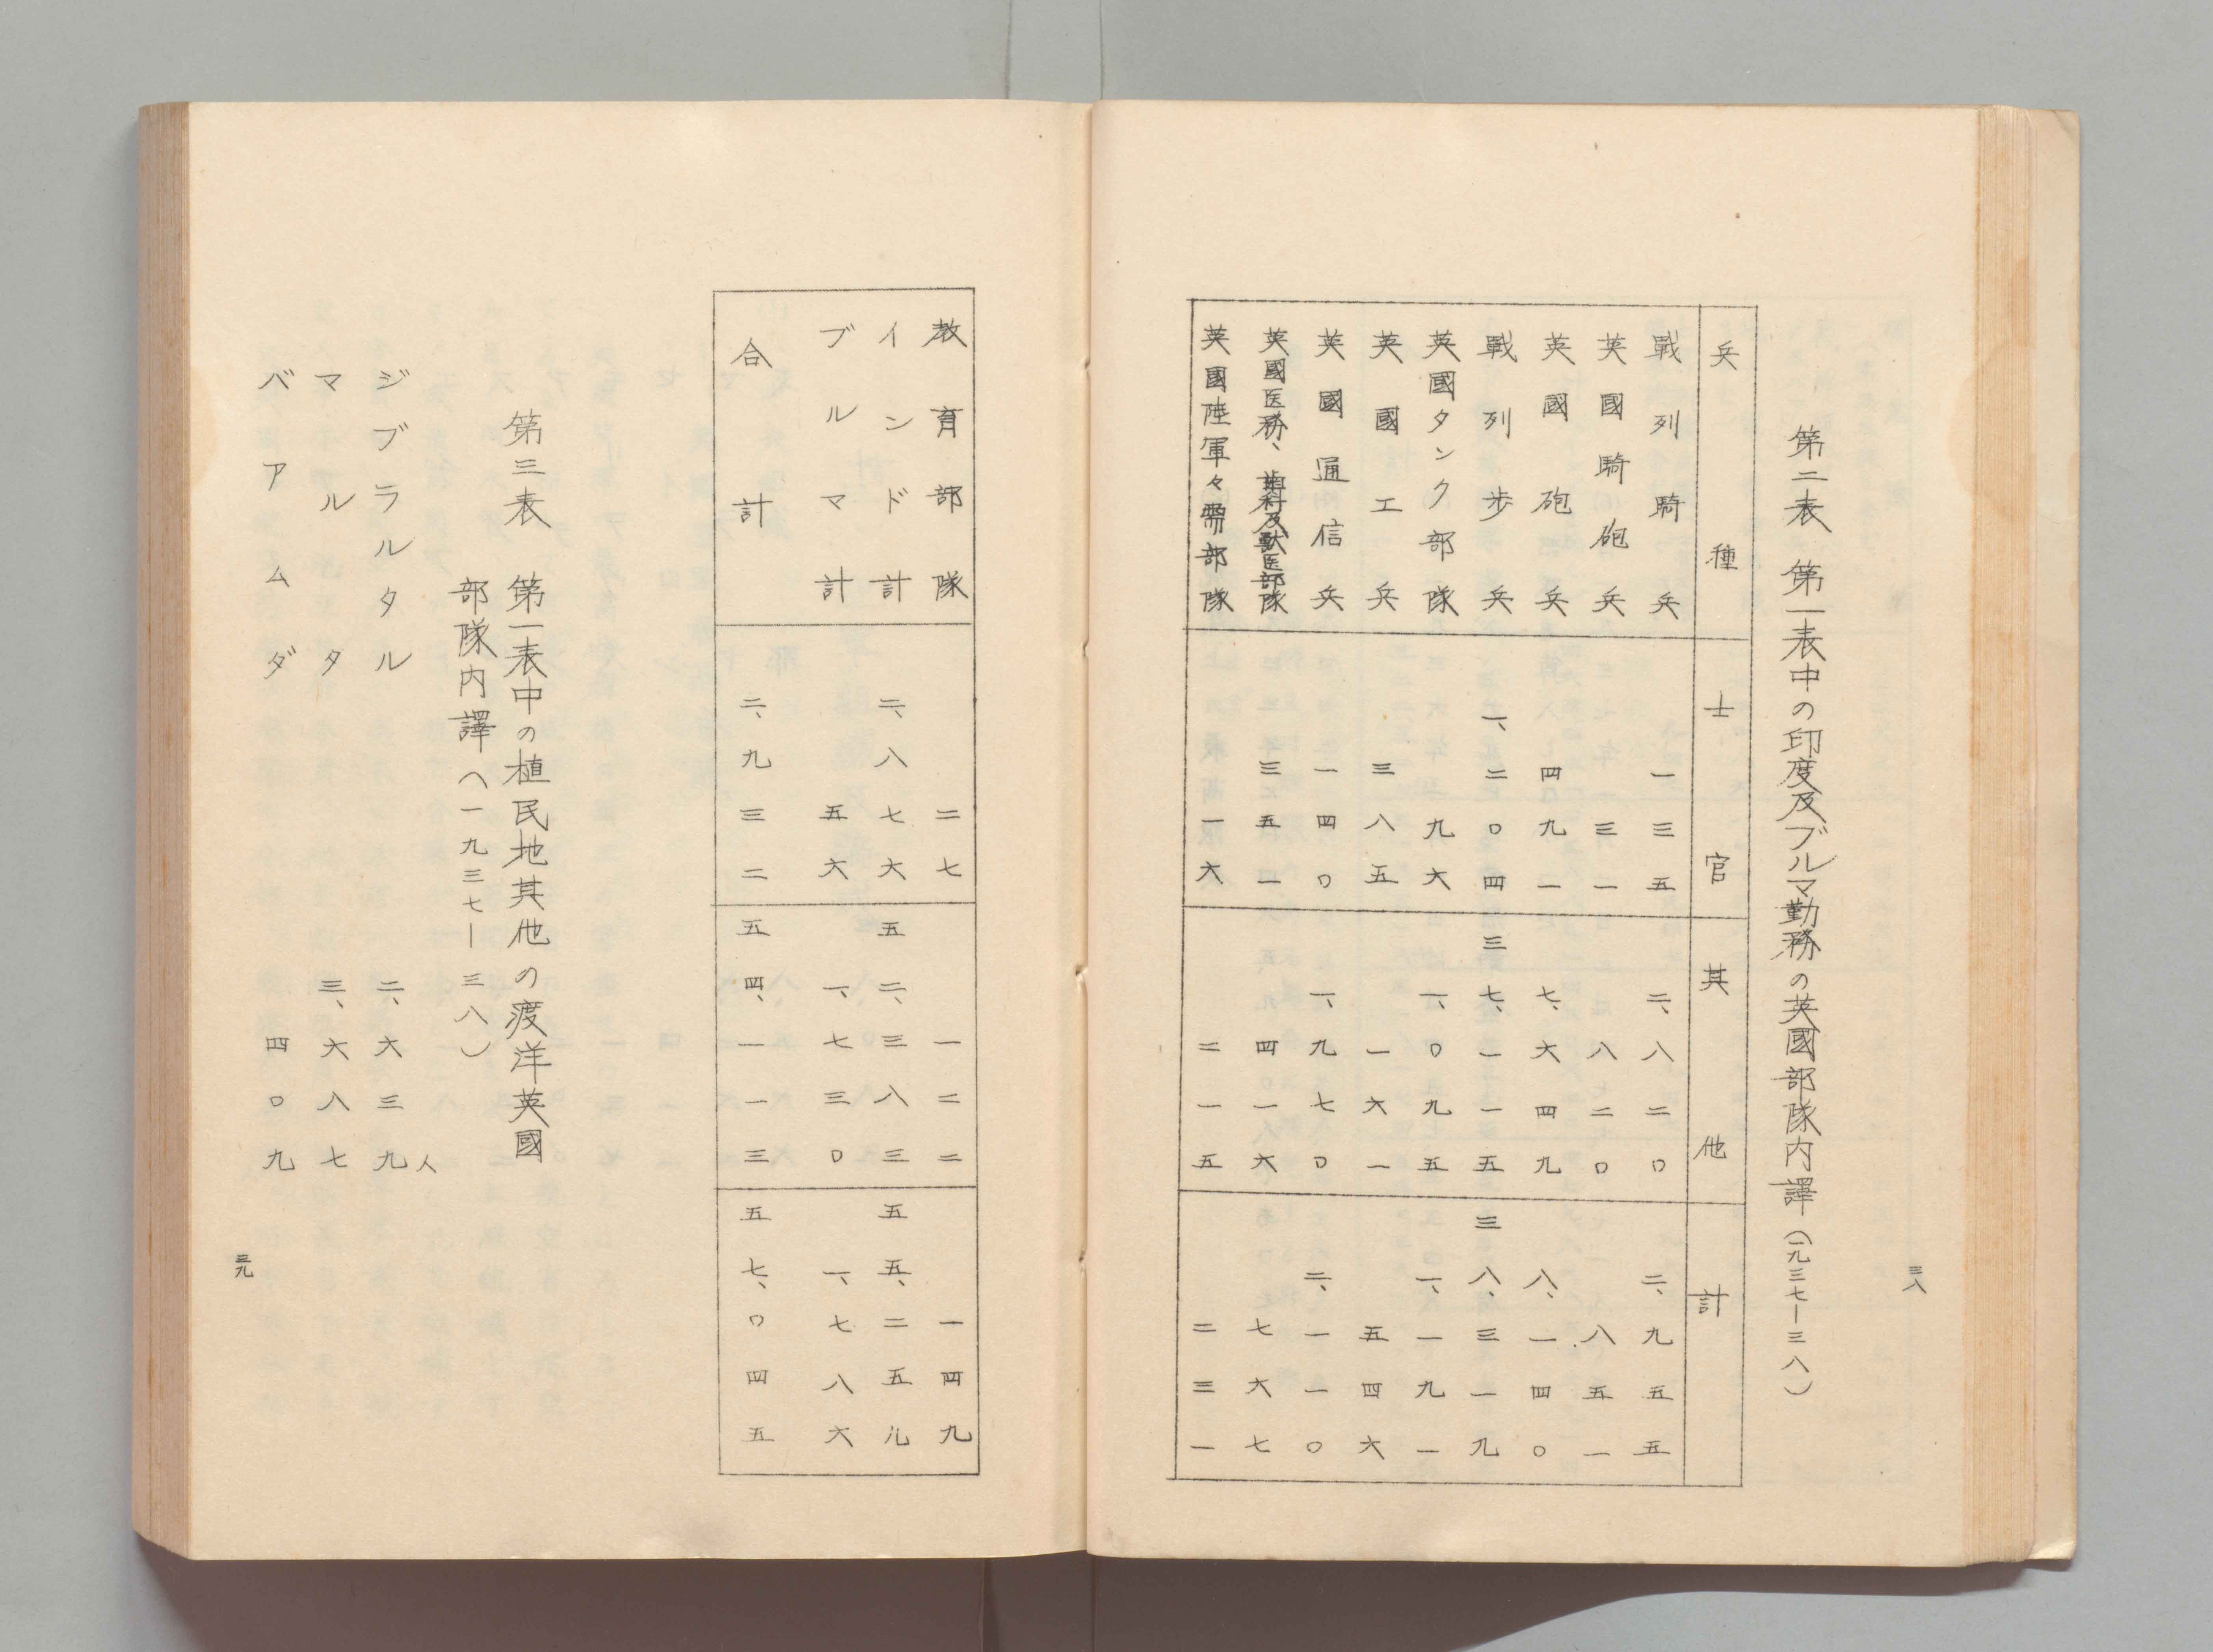 三八
第二表　第一表中の印度及ブルマ勤務の英國部隊内譯（一九三七―三八）
兵種　士官　其他　計
戰列騎兵　一三五　二、八二〇　二、九五五
英國騎砲兵　三一　八二〇　八五一
英國砲兵　四九一　七、六四九　八、一四〇
戰列步兵　一、二〇四　三七、一一五　三八、三一九
英國タンク部隊　九六　一、〇九五　一、一九一
英國工兵　三八五　一六一　五四六
英國通信兵　一四〇　一、九七〇　二、一一〇
英國医務、歯科及獣医部隊　三五一　四一六　七六七
英國陸軍々需部隊　一六　二一五　二三一
教育部隊　二七　一二二　一四九
インド計　二、八七六　五二、三八三　五五、二五九
ブルマ計　五六　一、七三〇　一、七八六
合計　二、九三二　五四、一一三　五七、〇四五
第三表　第一表中の植民地其他の渡洋英國
部隊内譯（一九三七―三八）
ジブラルタル　二、六三九人
マルタ　三、六八七
バアムダ　四〇九
三九